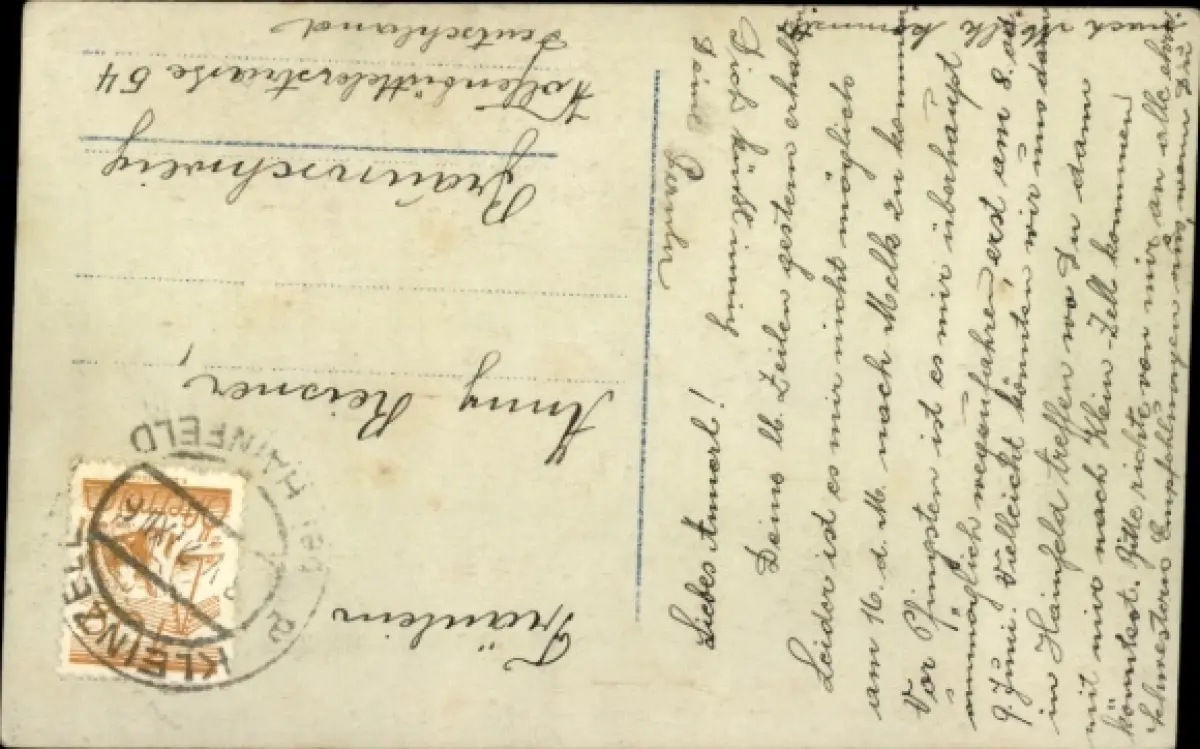 Liebes Annerl!
Deine lb. Zeilen gestern erhalten
Leider ist es mir nicht möglich
am 16. d. M. nach Melk zu kommen
Vor Pfingsten ist es mir überhaupt
unmöglich wegzufahren, erst am 8. od
9 Juni. Vielleicht könnten wir uns dann
in Hainfeld treffen wo Du dann
mit mir nach Klein-Zell kommen
könntest. Bitte richte von mir an alle ehrw
Schwestern Empfehlungen aus wenn Du
nach Melk kommst.
Dich küßt innig
Deine
Fräulein
Anny Reisner,
Braunschweig
Wolfenbüttelerstrasse 54
Deutschland
KLEINZELL
HAINFELD